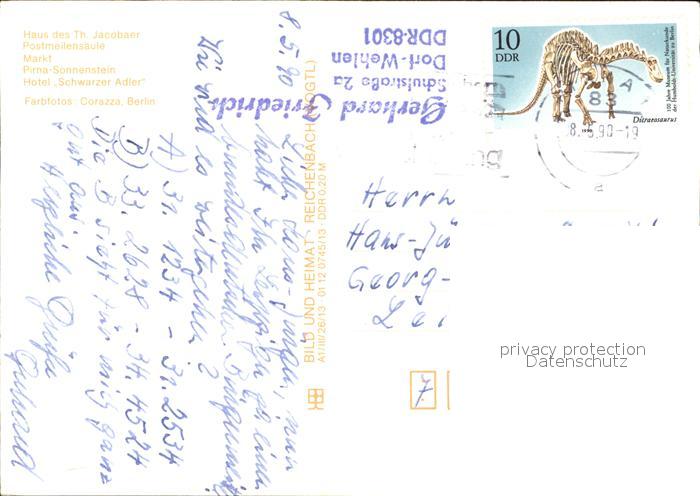 Haus des Th. Jacobaer
Postmeilensäule
Markt
Pirna-Sonnenstein
Hotel „Schwarzer Adler"
Farbfotos: Corazza, Berlin
Gerhard Friedrich
Schulstraße 2a
Dorf-Wehlen
DDR-8301
10
DDR
100 Jahre Museum für Naturkunde
der Humboldt-Universität zu Berlin
Dicraeosaurus
1990
83
8.5.90-19
a
BILD UND HEIMAT REICHENBACH (VOGTL)
A1/III/26/13 01 12 0745/13 DDR 0,20 M
8.5.90
Lieber Hans-Jürgen, nun
habt Ihr Leipziger
bundesdeutschen
Wie wird es weitergehen?
A) 31. 1234 - 31. 2534
B) 33. 2628 - 34. 4524
Die B sieht für mich ganz
gut aus.
Herzliche Grüße
Gerhard
Herrn
Hans-Jü
Georg-
Lei
7
privacy protection
Datenschutz